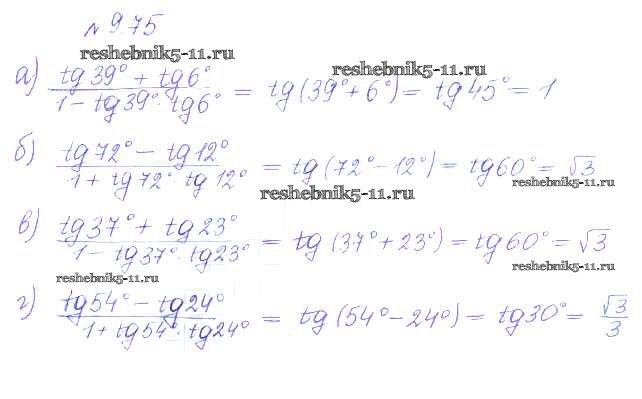 № 9.75
reshebnik5-11.ru
а) (tg 39° + tg 6°) / (1 − tg 39° · tg 6°) = tg (39° + 6°) = tg 45° = 1
reshebnik5-11.ru
б) (tg 72° − tg 12°) / (1 + tg 72° tg 12°) = tg (72° − 12°) = tg 60° = √3
reshebnik5-11.ru
reshebnik5-11.ru
в) (tg 37° + tg 23°) / (1 − tg 37° · tg 23°) = tg (37° + 23°) = tg 60° = √3
reshebnik5-11.ru
reshebnik5-11.ru
г) (tg 54° − tg 24°) / (1 + tg 54° · tg 24°) = tg (54° − 24°) = tg 30° = √3/3